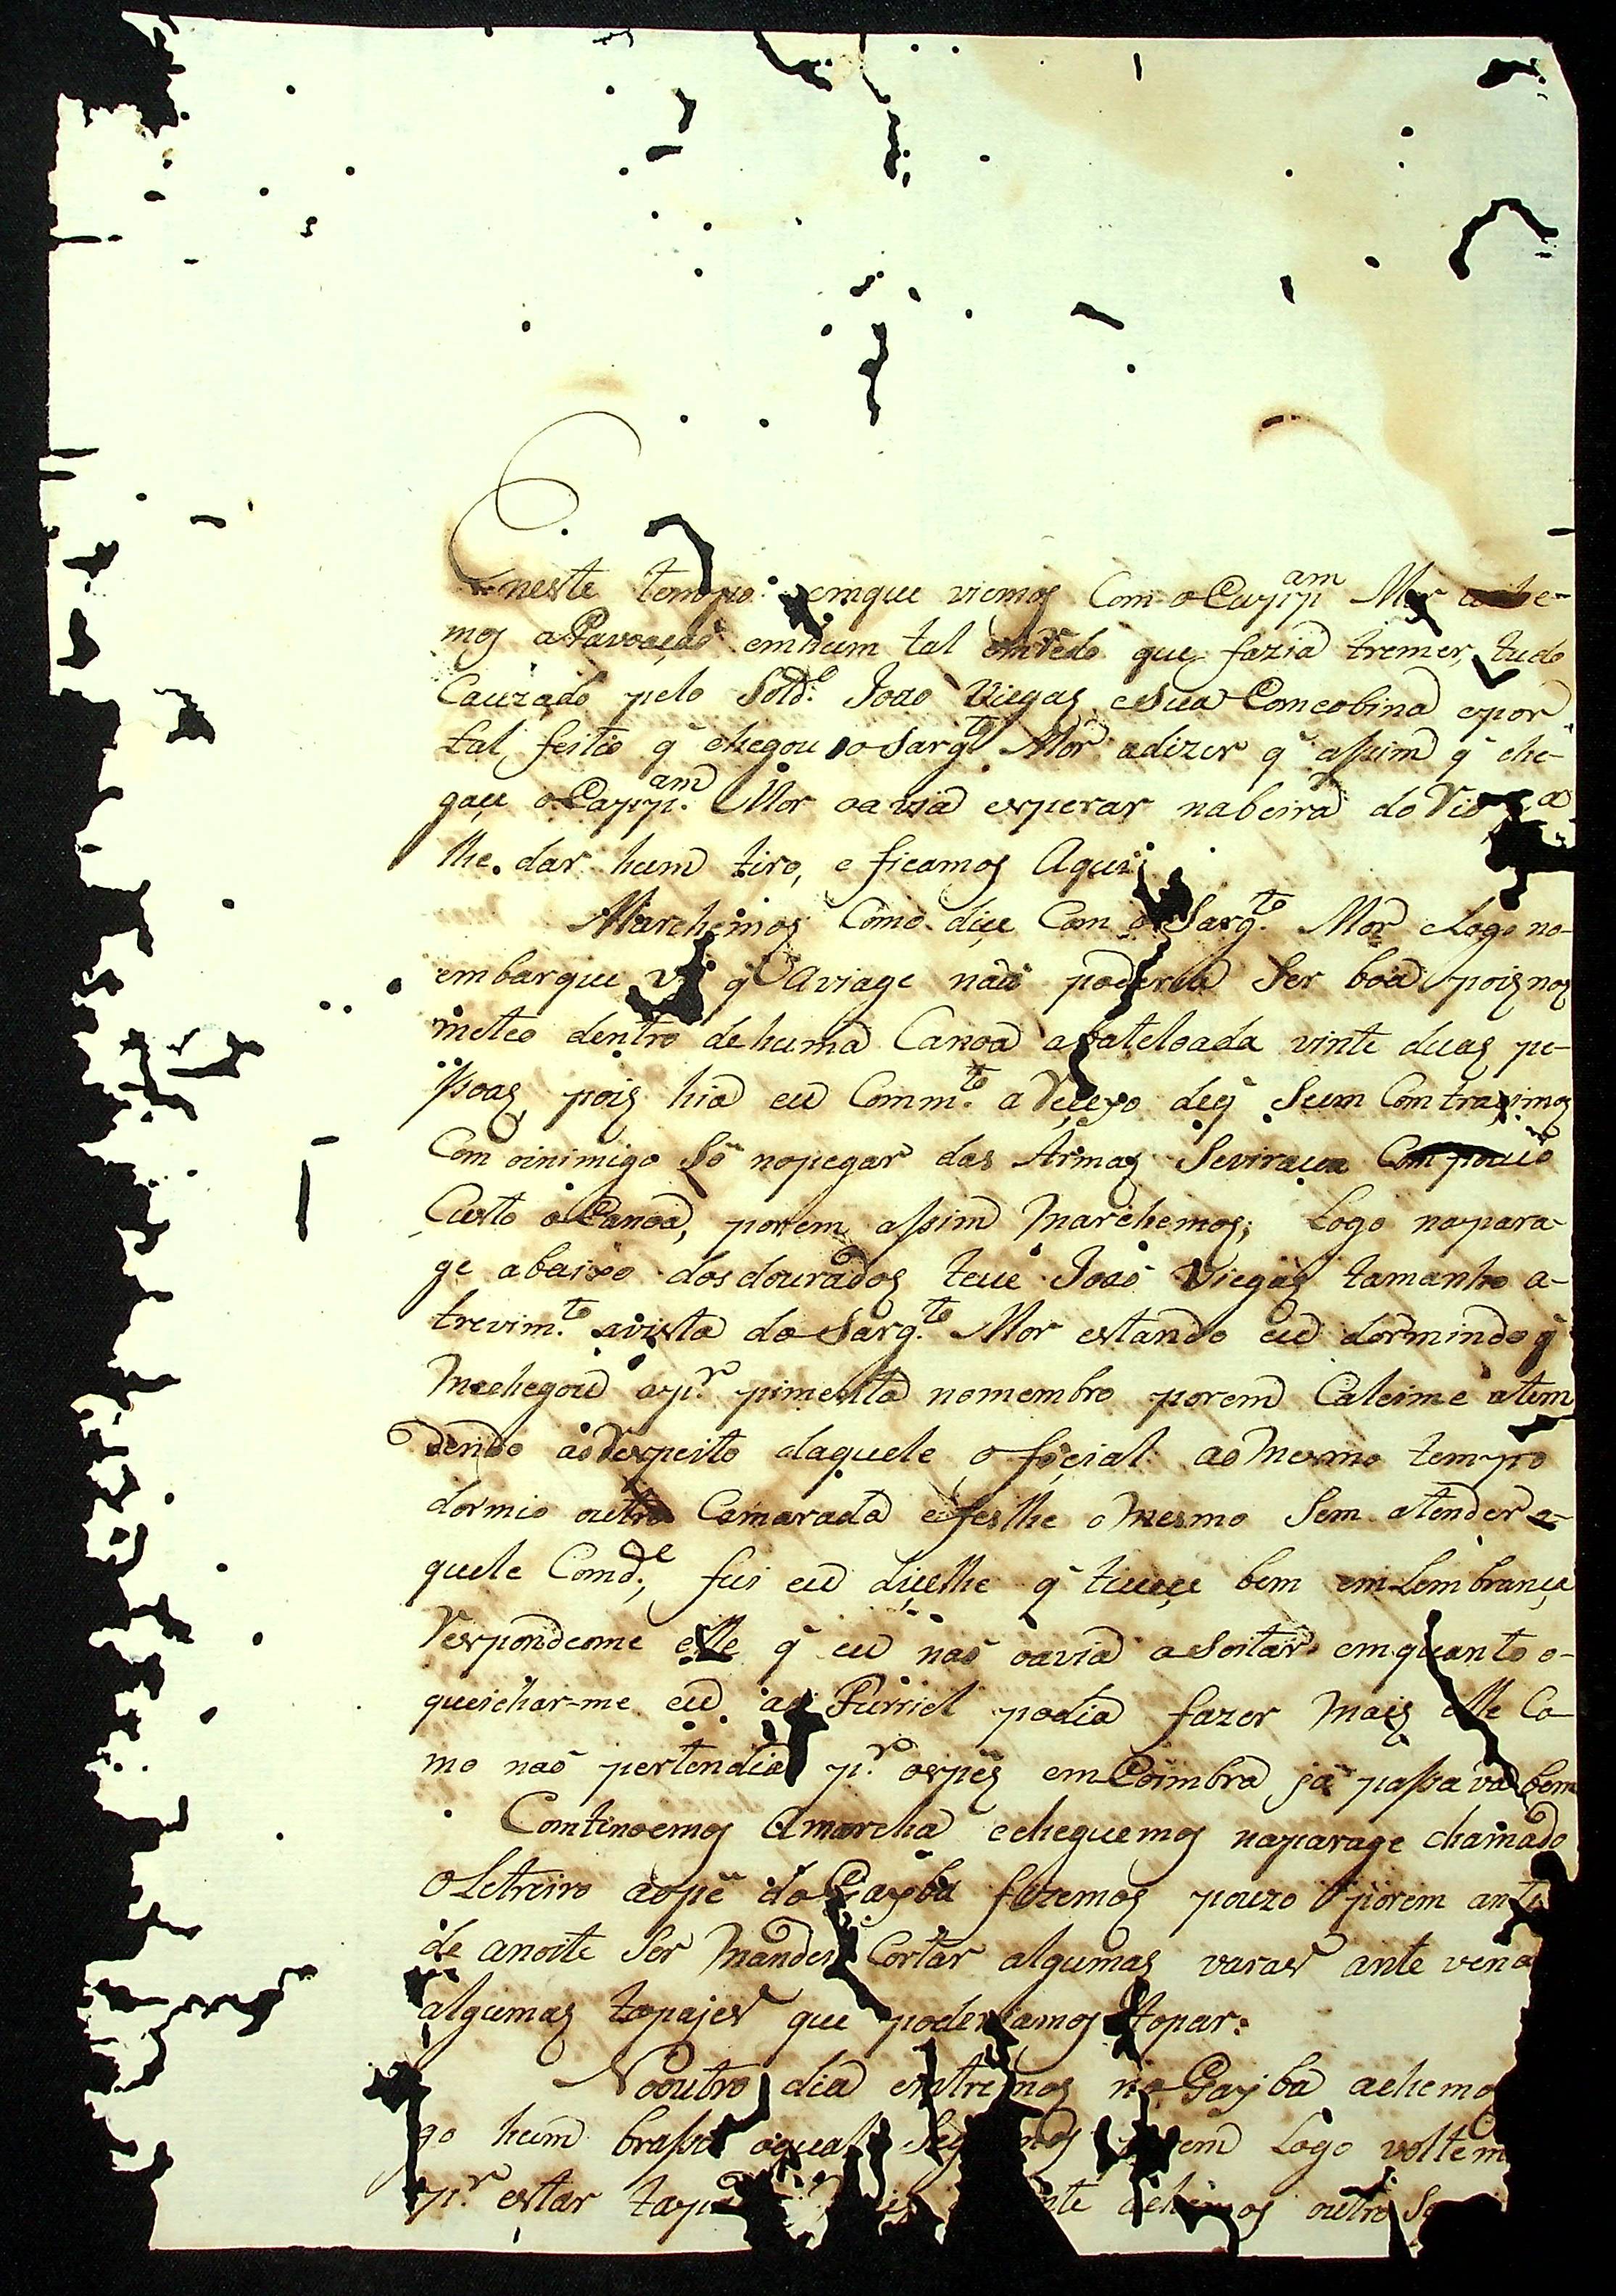 E neste tempo: emque viemos Com o Cappam Mor ache-
mos a Pavoação emhum tal emredo que fazia tremer, tudo
Cauzado pelo Sold.º Joao Viegas esua Comcobina epor
tal feitio q̃ chegou o Sargto Mor adizer q̃ assim q̃ che-
gaçe o Cappam. Mor oavia esperar nabeira do Rio a
lhe dar hum tiro, e ficamos Aqui:
Marchemos Como diçe Com o Sargto. Mor eLogo no-
embarque vi q̃ Aviage naõ poderia Ser boa poisnos
meteo dentro dehuma Canoa abateloada vinte duas pe-
ssoas, pois hia eu Commto. a Reçeyo deq̃ Seem Contraçimos
Com oinimigo Só nopegar das Armas Seviraça Compouco
Custo a Canoa, porem assim Marchemos; Logo napara-
ge abaixo dosdourados teue Joaõ Viegas tamanho a-
trevimto. avista do Sargto. Mor estando eu dormindo q̃
Mechegou apr. pimenta nomembro porem Caleime atem
dendo aoRespeito daquele ofiçial ao Mesmo tempo
dormio outro Camarada efeslhe o Mesmo Sem atender a-
quele Comde., fui eu diçelhe q̃ tiueçe bem emLembrança
Respondeome elle q̃ eu naõ oavia asoitar emquanto o-
queichar-me eu ao Furriel podia fazer Mais elle Co-
mo naõ pertendia pr. ospés emCoimbra já passava bem
Continoemos Amarcha echeguemos naparage chamado
O Letreiro aopé do Gayba fizemos pouzo porem ante
de anoite Ser Mandei Cortar algumas varas ante vendo
algumas tapajes que poderiamos topar:
Nooutro dia entremos no Gayba achemo
go hum brasso oqual Seg mos em Logo voltem
pr. estar tap nte achemos outro